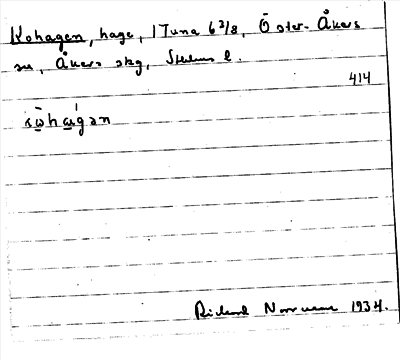 Kohagen, hage, 1 Tuna 6 2/8, Öster-Åkers
sn, Åkers skg, Sthlms l.
414
Rickard Norrman 1934.